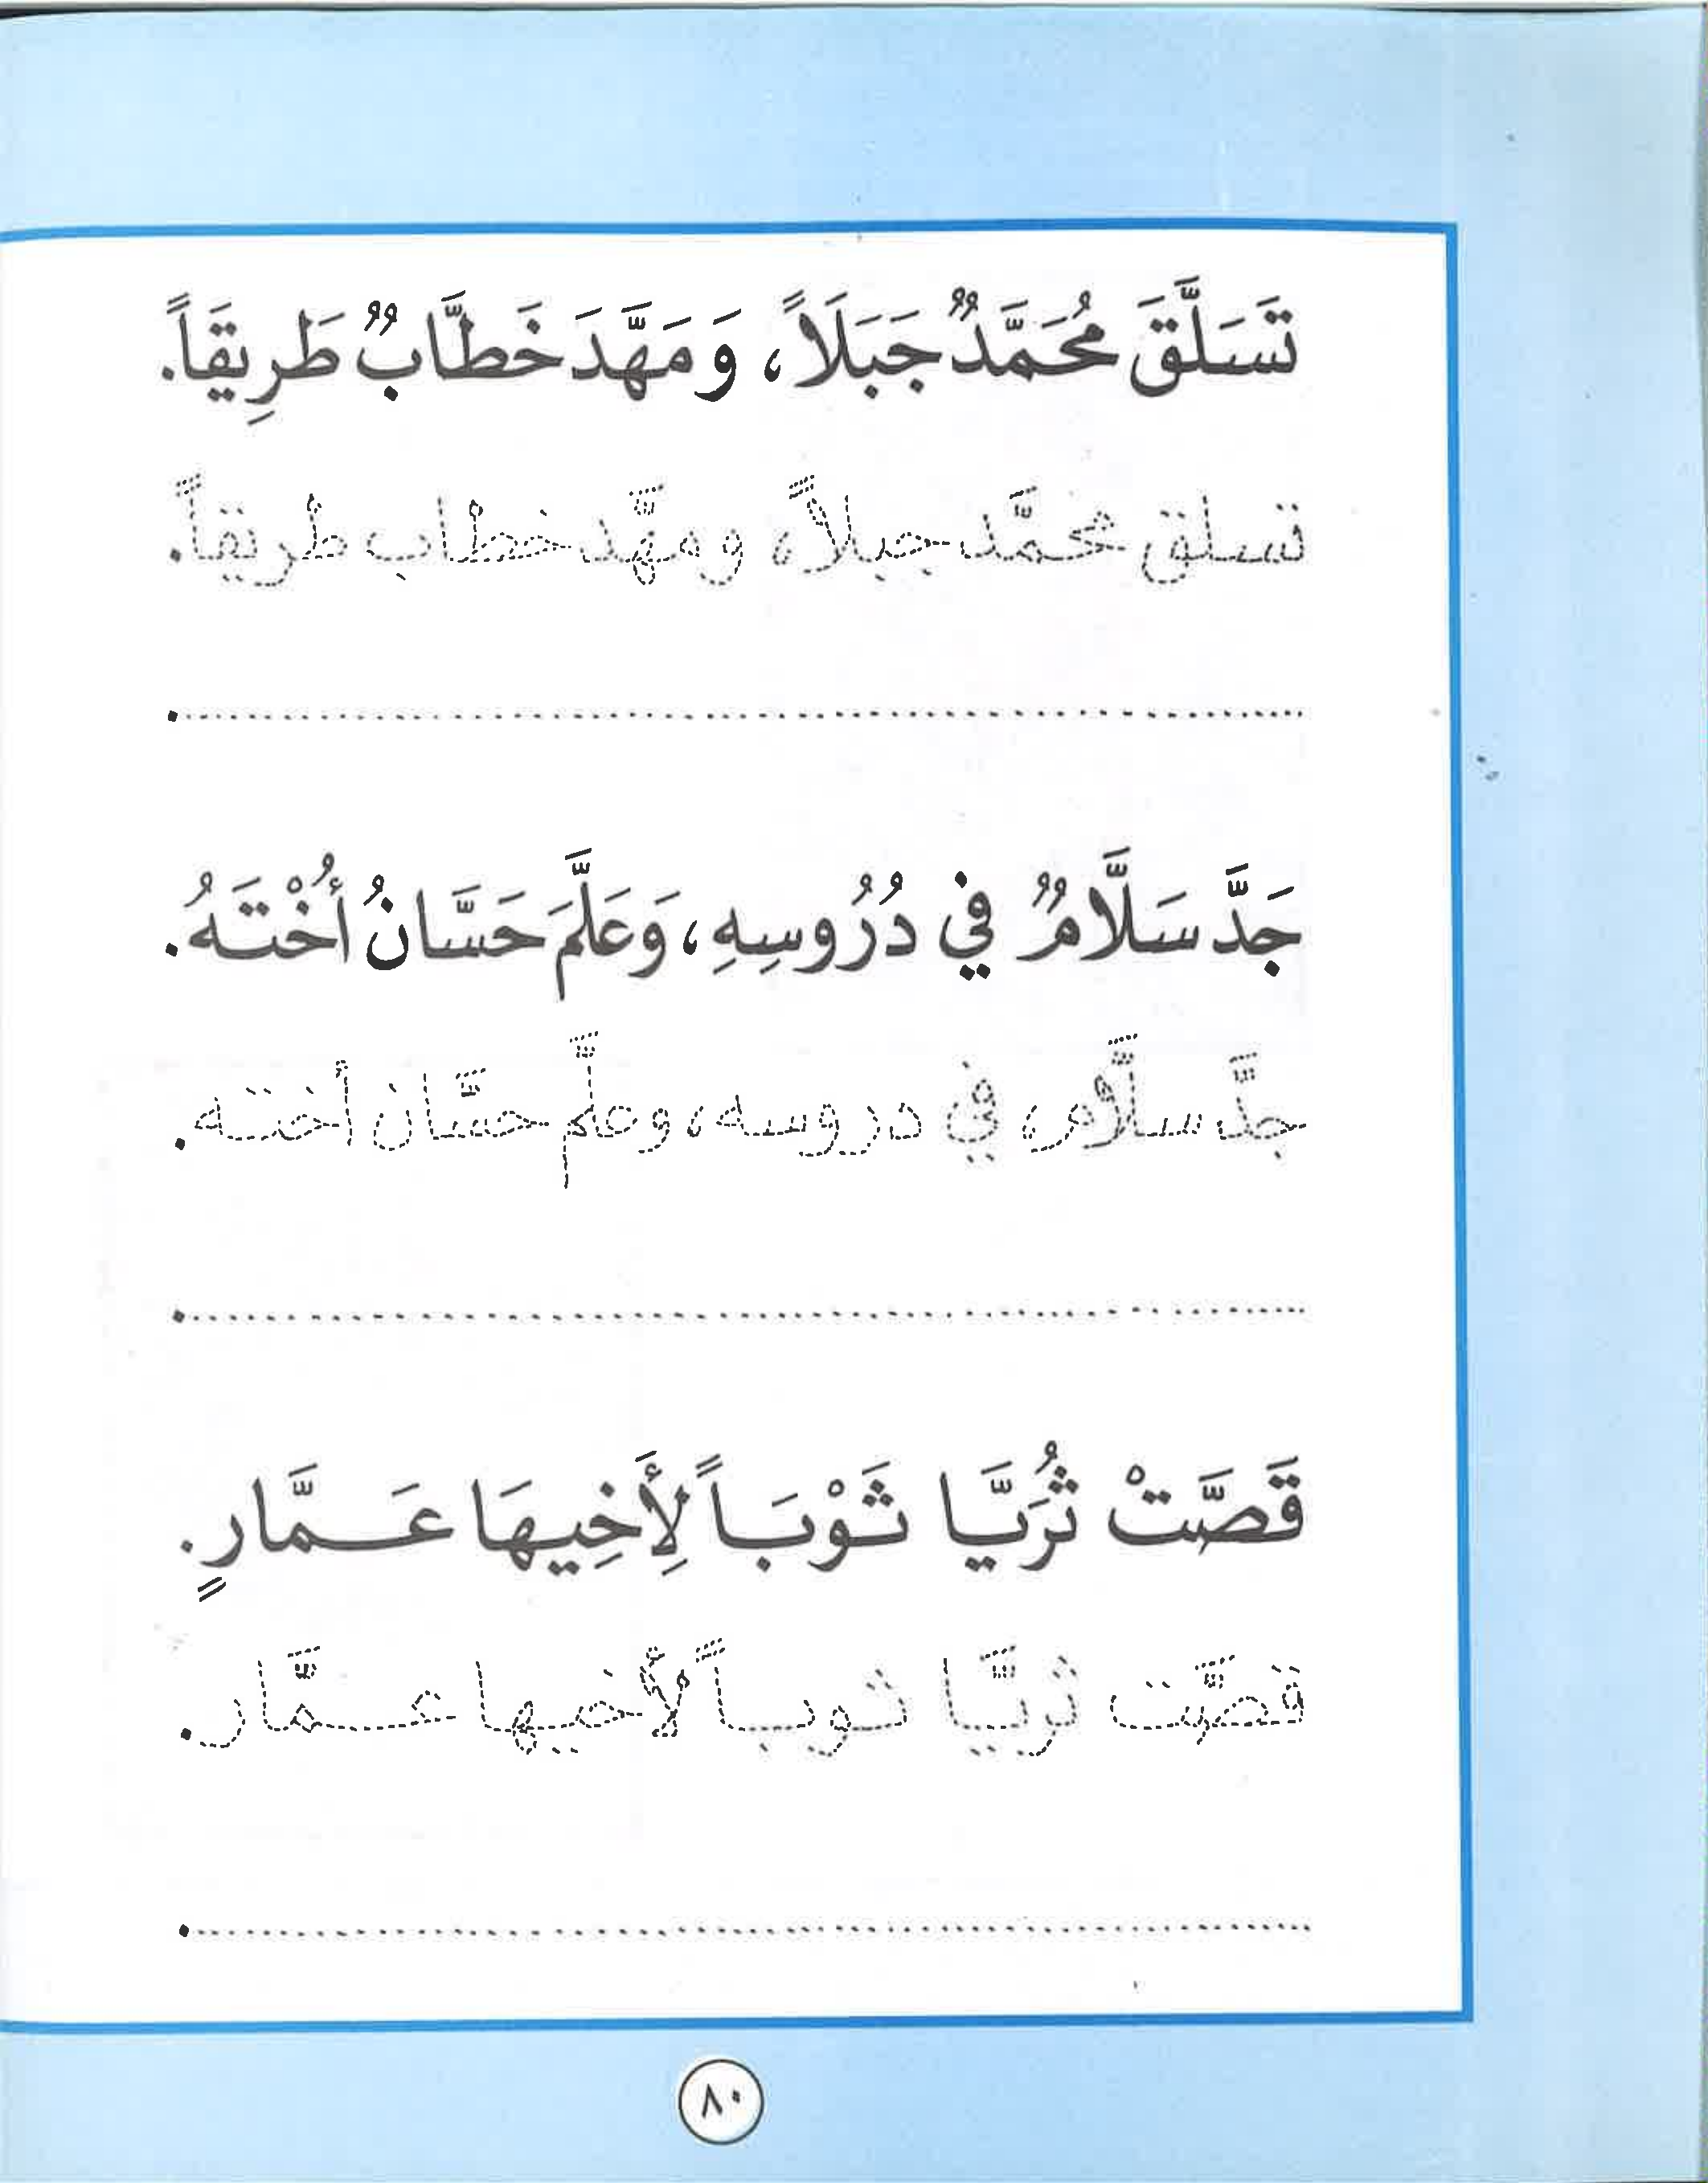 تَسَلَّقَ مُحَمَّدٌ جَبَلَاً، وَ مَهَّدَ خَطَّابٌ طَرِيقَاً.
تسلق محمَّد جبلاً، و مهَّد خطاب طريقاً.
جَدَّ سَلَّامٌ في دُرُوسِهِ، وَعَلَّمَ حَسَّانُ أُخْتَهُ.
جدَّ سلَّام، في دروسه، وعلَّم حسَّان أخته.
قَصَّتْ ثُرَيَّا ثَوْبَاً لِأَخِيهَا عَمَّارٍ.
قصَّت ثريَّا ثوباً لأخيها عمَّار.
٨٠